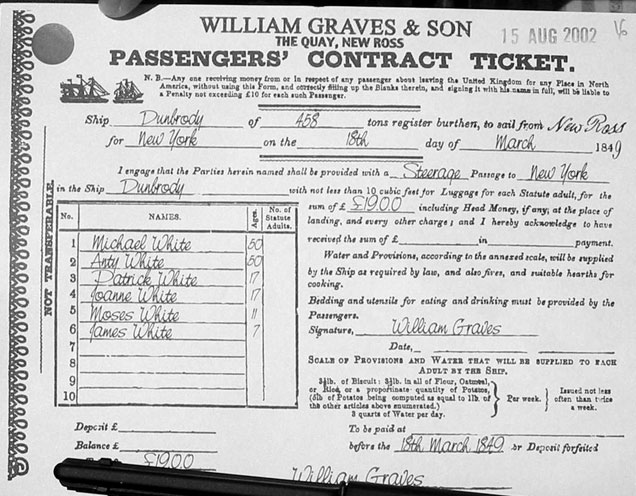 WILLIAM GRAVES & SON
15 AUG 2002
THE QUAY, NEW ROSS
PASSENGERS' CONTRACT TICKET.
N. B.—Any one receiving money from or in respect of any passenger about leaving the United Kingdom for any Place in North
America, without using this Form, and correctly filling up the Blanks therein, and signing it with his name in full, will be liable to
a Penalty not exceeding £10 for each such Passenger.
Ship Dunbrody of 458 tons register burthen, to sail from New Ross
for New York on the 18th day of March 1849
I engage that the Parties herein named shall be provided with a Steerage Passage to New York
in the Ship Dunbrody with not less than 10 cubic feet for Luggage for each Statute adult, for the
sum of £ £19.0.0 including Head Money, if any, at the place of
landing, and every other charge; and I hereby acknowledge to have
received the sum of £ in payment.
NOT TRANSFERABLE.
No. NAMES. Ages. No. of Statute Adults.
1 Michael White 50
2 Anty White 50
3 Patrick White 17
4 Joanne White 17
5 Moses White 11
6 James White 7
7
8
9
10
Water and Provisions, according to the annexed scale, will be supplied
by the Ship as required by law, and also fires, and suitable hearths for
cooking.
Bedding and utensils for eating and drinking must be provided by the
Passengers.
Signature, William Graves
Date,
SCALE OF PROVISIONS AND WATER THAT WILL BE SUPPLIED TO EACH
ADULT BY THE SHIP.
3½lb. of Biscuit: 3½lb. in all of Flour, Oatmeal,
or Rice, or a proportionate quantity of Potatos,
(5lb of Potatos being computed as equal to 1lb. of
the other articles above enumerated.)
3 quarts of Water per day.
Per week.
Issued not less
often than twice
a week.
Deposit £
Balance £
£19.0.0
To be paid at
before the 18th March 1849. or Deposit forfeited
William Graves